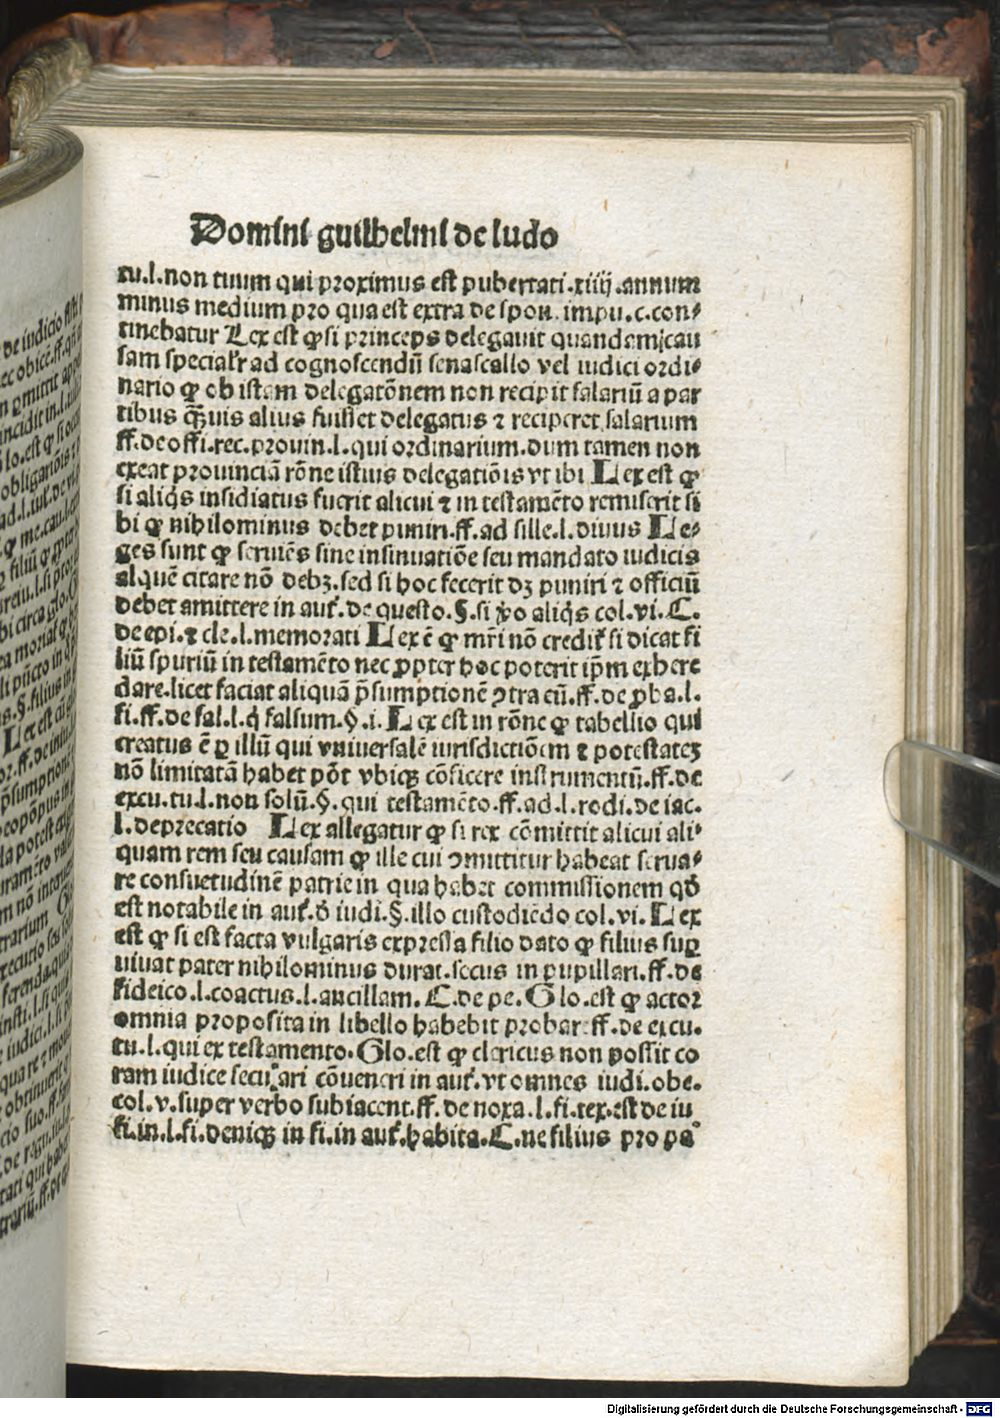 Domini guilhelmi de ludo
tu.l.non tuum qui proximus est pubertati.xiiij.annum
minus medium pro qua est extra de spon.impu.c.con⸗
tinebatur Lex est ꝙ si princeps delegauit quandam cau
sam specialr̄ ad cognoscendū senascallo vel iudici ordi⸗
nario ꝙ ob istam delegatōnem non recipit salariū a par
tibus qͣꝫuis alius fuisset delegatus ⁊ reciperet salarium
ff.de offi.rec.prouin.l.qui ordinarium.dum tamen non
exeat prouinciā rōne istius delegatiōis vt ibi Lex est ꝙ
si aliqͥs insidiatus fuerit alicui ⁊ in testamēto remiserit si
bi ꝙ nihilominus debet puniri.ff.ad sille.l.diuus Le⸗
ges sunt ꝙ seruiēs sine insinuatiōe seu mandato iudicis
alquē citare nō debꝫ.sed si hoc fecerit dꝫ puniri ⁊ officiū
debet amittere in aut̄.de questo.§.si ꝟo aliqͥs col.vi.C.
de epi.⁊ cle.l.memorati Lex ē ꝙ mr̄i nō credit̄ si dicat fi
liū spuriū in testamēto nec ꝓpter hoc poterit ip̄m exhere
dare.licet faciat aliquā p̄sumptionē ꝯtra eū.ff.de ꝓba.l.
fi.ff.de fal.l.qͥ falsum.§.i.Lex est in rōne ꝙ tabellio qui
creatus ē ꝑ illū qui vniuersalē iurisdictiōem ⁊ potestateꝫ
nō limitatā habet pōt vbiqꝫ cōficere instrumentū.ff.de
excu.tu.l.non solū.§.qui testamēto.ff.ad.l.rodi.de iac.
l.deprecatio Lex allegatur ꝙ si rex cōmittit alicui ali⸗
quam rem seu causam ꝙ ille cui ꝯmittitur habeat serua⸗
re consuetudinē patrie in qua habet commissionem qđ
est notabile in aut̄.đ iudi.§.illo custodiēdo col.vi.Lex
est ꝙ si est facta vulgaris expressa filio dato ꝙ filius suꝑ
uiuat pater nihilominus durat.secus in pupillari.ff.de
fideico.l.coactus.l.ancillam.C.de pe.Glo.est ꝙ actor
omnia proposita in libello habebit probar.ff.de excu.
tu.l.qui ex testamento.Glo.est ꝙ clericus non possit co
ram iudice seculari cōueneri in aut̄.vt omnes iudi.obe.
col.v.super verbo subiacent.ff.de noxa.l.fi.tex.est de iu
fi.in.l.fi.deniqꝫ in fi.in aut̄.habita.C.ne filius pro pa
Digitalisierung gefördert durch die Deutsche Forschungsgemeinschaft - DFG